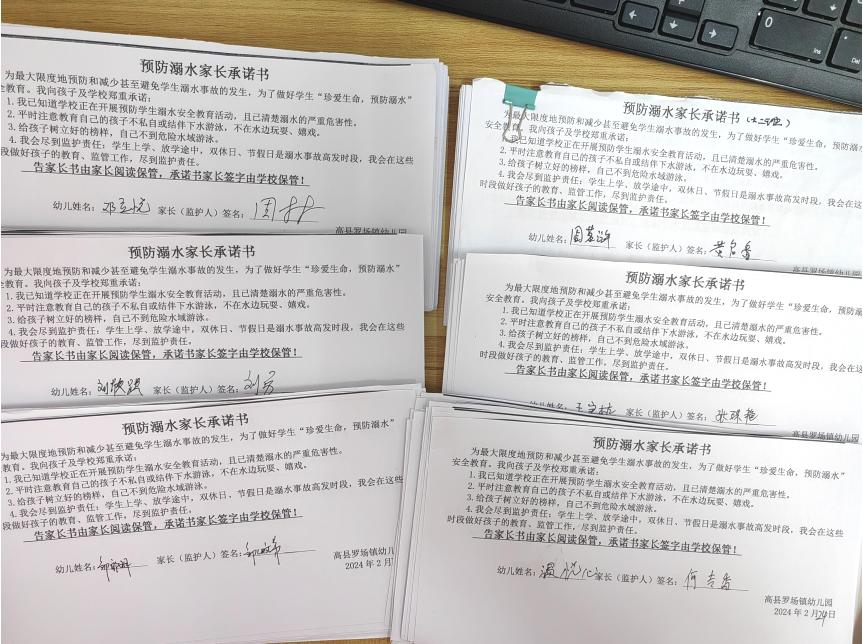 预防溺水家长承诺书
为最大限度地预防和减少甚至避免学生溺水事故的发生，为了做好学生“珍爱生命，预防溺水”
全教育。我向孩子及学校郑重承诺：
1.我已知道学校正在开展预防溺水安全教育活动，且已清楚溺水的严重危害性。
2.平时注意教育自己的孩子不私自或结伴下水游泳，不在水边玩耍、嬉戏。
3.给孩子树立好的榜样，自己不到危险水域游泳。
4.我会尽到监护责任：学生上学、放学途中，双休日、节假日是溺水事故高发时段，我会在这些
段做好孩子的教育、监管工作，尽到监护责任。
告家长书由家长阅读保管，承诺书家长签字由学校保管！
幼儿姓名： 家长（监护人）签名：
高县罗场镇幼儿园
预防溺水家长承诺书
为最大限度地预防和减少甚至避免学生溺水事故的发生，为了做好学生“珍爱生命，预防溺水”
教育。我向孩子及学校郑重承诺：
1.我已知道学校正在开展预防溺水安全教育活动，且已清楚溺水的严重危害性。
2.平时注意教育自己的孩子不私自或结伴下水游泳，不在水边玩耍、嬉戏。
3.给孩子树立好的榜样，自己不到危险水域游泳。
4.我会尽到监护责任：学生上学、放学途中，双休日、节假日是溺水事故高发时段，我会在这些
段做好孩子的教育、监管工作，尽到监护责任。
告家长书由家长阅读保管，承诺书家长签字由学校保管！
幼儿姓名： 家长（监护人）签名：刘芳
预防溺水家长承诺书
为最大限度地预防和减少甚至避免学生溺水事故的发生，为了做好学生“珍爱生命，预防溺水”
教育。我向孩子及学校郑重承诺：
1.我已知道学校正在开展预防溺水安全教育活动，且已清楚溺水的严重危害性。
2.平时注意教育自己的孩子不私自或结伴下水游泳，不在水边玩耍、嬉戏。
3.给孩子树立好的榜样，自己不到危险水域游泳。
4.我会尽到监护责任：学生上学、放学途中，双休日、节假日是溺水事故高发时段，我会在这些
段做好孩子的教育、监管工作，尽到监护责任。
告家长书由家长阅读保管，承诺书家长签字由学校保管！
幼儿姓名： 家长（监护人）签名：
高县罗场镇幼儿
2024年2月
预防溺水家长承诺书
为最大限度地预防和减少甚至避免学生溺水事故的发生，为了做好学生“珍爱生命，预防溺
安全教育。我向孩子及学校郑重承诺：
我已知道学校正在开展预防溺水安全教育活动，且已清楚溺水的严重危害性。
2.平时注意教育自己的孩子不私自或结伴下水游泳，不在水边玩耍、嬉戏。
3.给孩子树立好的榜样，自己不到危险水域游泳。
4.我会尽到监护责任：学生上学、放学途中，双休日、节假日是溺水事故高发时段，我会在这
时段做好孩子的教育、监管工作，尽到监护责任。
告家长书由家长阅读保管，承诺书家长签字由学校保管！
幼儿姓名： 家长（监护人）签名：
高县罗场镇幼儿园
预防溺水家长承诺书
为最大限度地预防和减少甚至避免学生溺水事故的发生，为了做好学生“珍爱生命，预防溺
安全教育。我向孩子及学校郑重承诺：
1.我已知道学校正在开展预防溺水安全教育活动，且已清楚溺水的严重危害性。
2.平时注意教育自己的孩子不私自或结伴下水游泳，不在水边玩耍、嬉戏。
3.给孩子树立好的榜样，自己不到危险水域游泳。
4.我会尽到监护责任：学生上学、放学途中，双休日、节假日是溺水事故高发时段，我会在这
时段做好孩子的教育、监管工作，尽到监护责任。
告家长书由家长阅读保管，承诺书家长签字由学校保管！
幼儿姓名： 家长（监护人）签名：张琪艳
高县罗场镇幼儿园
预防溺水家长承诺书
为最大限度地预防和减少甚至避免学生溺水事故的发生，为了做好学生“珍爱生命，预防溺水”
安全教育。我向孩子及学校郑重承诺：
1.我已知道学校正在开展预防溺水安全教育活动，且已清楚溺水的严重危害性。
2.平时注意教育自己的孩子不私自或结伴下水游泳，不在水边玩耍、嬉戏。
3.给孩子树立好的榜样，自己不到危险水域游泳。
4.我会尽到监护责任：学生上学、放学途中，双休日、节假日是溺水事故高发时段，我会在这些
时段做好孩子的教育、监管工作，尽到监护责任。
告家长书由家长阅读保管，承诺书家长签字由学校保管！
幼儿姓名： 家长（监护人）签名：
高县罗场镇幼儿园
2024年2月24日
0
Ins
Del